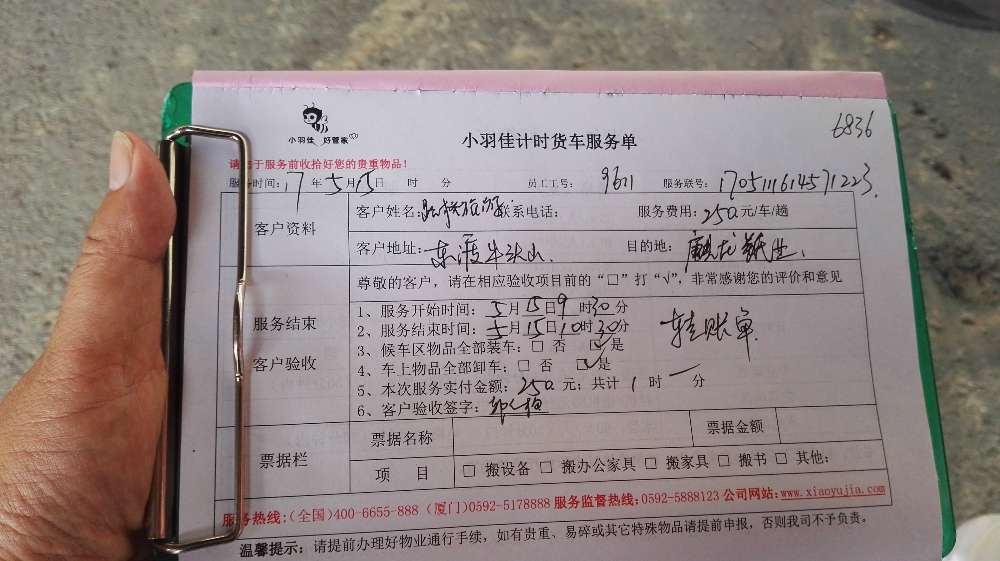 小羽佳 好管家
小羽佳计时货车服务单
6836
请您于服务前收拾好您的贵重物品！
服务时间：17年5月15日 时 分 员工工号：9611 服务联号：1705111614571223
客户资料
客户姓名： 联系电话： 服务费用：250元/车/趟
客户地址：东渡牛头山 目的地：
尊敬的客户，请在相应验收项目前的“□”打“√”，非常感谢您的评价和意见
服务结束
客户验收
1、服务开始时间：5月15日9时30分
2、服务结束时间：5月15日10时30分
转账单
3、候车区物品全部装车：□ 否 ☑ 是
4、车上物品全部卸车：□ 否 ☑ 是
5、本次服务实付金额：250元；共计1时一分
6、客户验收签字：
票据栏
票据名称 票据金额
项 目 □ 搬设备 □ 搬办公家具 □ 搬家具 □ 搬书 □ 其他：
服务热线：（全国）400-6655-888（厦门）0592-5178888 服务监督热线：0592-5888123 公司网站：www.xiaoyujia.com
温馨提示：请提前办理好物业通行手续，如有贵重、易碎或其它特殊物品请提前申报，否则我司不予负责。